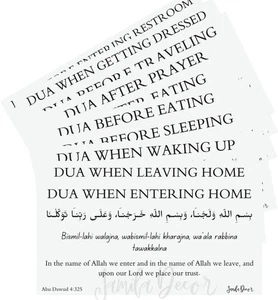 BEFORE ENTERING RESTROOM
DUA WHEN GETTING DRESSED
DUA BEFORE TRAVELING
DUA AFTER PRAYER
DUA AFTER EATING
DUA BEFORE EATING
DUA BEFORE SLEEPING
DUA WHEN WAKING UP
DUA WHEN LEAVING HOME
DUA WHEN ENTERING HOME
بِسْمِ اللَّهِ وَلَجْنَـا، وَبِسْمِ اللَّهِ خَـرَجْنَـا، وَعَلَـى رَبِّنَا تَوَكَّلْـنَا
Bismil-lahi walajna, wabismil-lahi kharajna, wa'ala rabbina
tawakkalna
In the name of Allah we enter and in the name of Allah we leave, and
upon our Lord we place our trust.
Abu Dawud 4:325
Jamila Decor
Jamila Decor